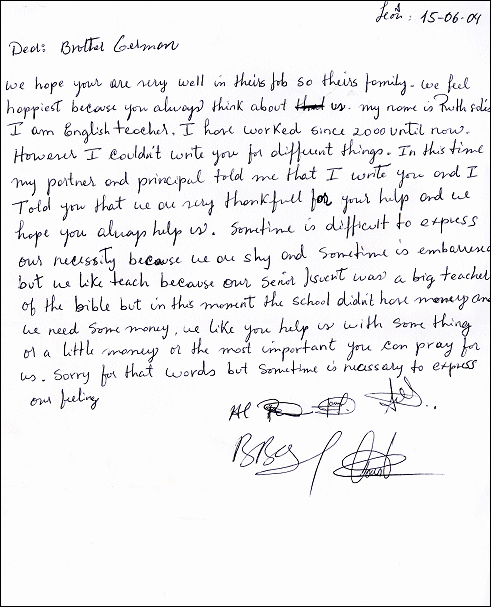 León: 15-06-04
Dear: Brother German
we hope your are very well in theirs job so theirs family. we feel
happiest because you always think about that us. my name is Ruth
I am English teacher. I have worked since 2000 until now.
However I couldn't write you for different things. In this time
my partner and principal told me that I write you and I
Told you that we are very thankfull for your help and we
hope you always help us. Sometime is difficult to express
our necessity because we are shy and sometime is embarrence
but we like teach because our Señor was a big teacher
of the bible but in this moment the school didn't have money and
we need some money, we like you help us with some thing
or a little money or the most important you can pray for
us. Sorry for that words but sometime is necessary to express
our feeling